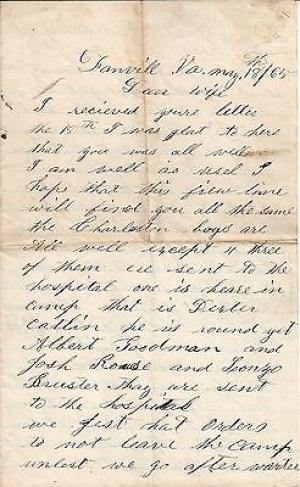 Danvill Va. may 18th/65
Dear wife
I recieved youre letter
the 15th I was glat to here
that you was all well
I am well as usel I
hope that this fiew line
will find you all the same
the Charleston boys are
All well except 4 three
of them sent to the
hospital one is heare in
camp that is Dexter
catlin he is round yet
Albert Goodman and
Josh Rouse and Lonzo
Bruster thay are sent
to the hospital
we gest hat orders
to not leave the camp
unlest we go after wartter